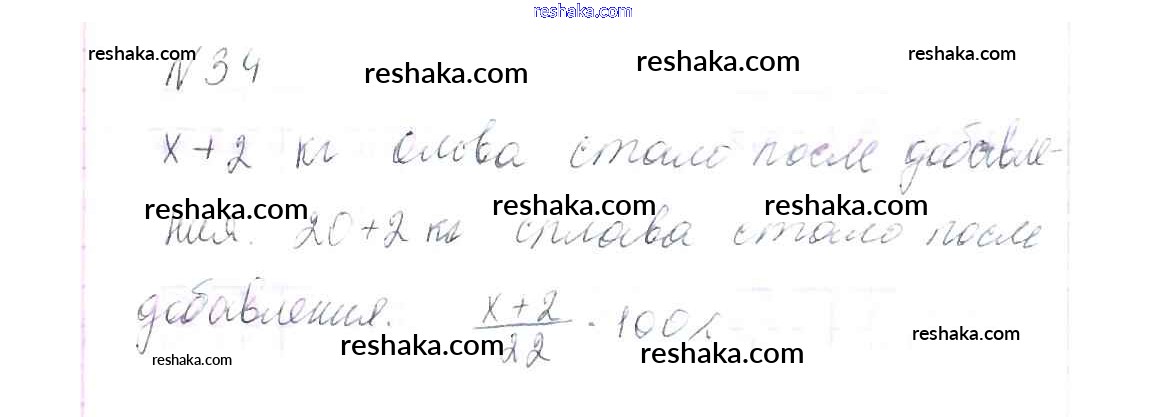 reshaka.com
reshaka.com reshaka.com reshaka.com reshaka.com
N 34
x+2 кг олова стало после добавле-
reshaka.com reshaka.com reshaka.com
ния. 20+2 кг сплава стало после
добавления. x+2/22 · 100%
reshaka.com reshaka.com reshaka.com reshaka.com